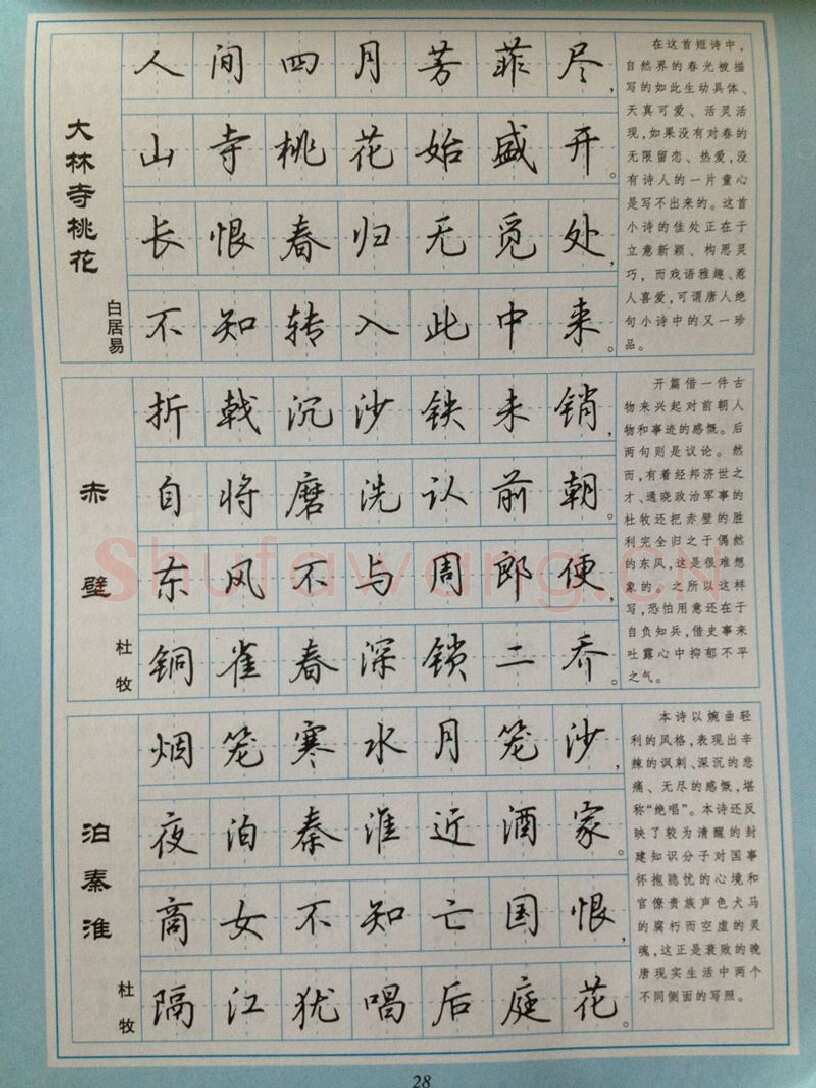 大林寺桃花
白居易
人间四月芳菲尽，
山寺桃花始盛开。
长恨春归无觅处，
不知转入此中来。
在这首短诗中，
自然界的春光被描
写的如此生动具体、
天真可爱、活灵活
现，如果没有对春的
无限留恋、热爱，没
有诗人的一片童心
是写不出来的。这首
小诗的佳处正在于
立意新颖、构思灵
巧，而戏语雅趣、惹
人喜爱，可谓唐人绝
句小诗中的又一珍
品。
赤壁
杜牧
折戟沉沙铁未销，
自将磨洗认前朝。
东风不与周郎便，
铜雀春深锁二乔。
开篇借一件古
物来兴起对前朝人
物和事迹的感慨。后
两句则是议论。然
而，有着经邦济世之
才、通晓政治军事的
杜牧还把赤壁的胜
利完全归之于偶然
的东风，这是很难想
象的。之所以这样
写，恐怕用意还在于
自负知兵，借史事来
吐露心中抑郁不平
之气。
泊秦淮
杜牧
烟笼寒水月笼沙，
夜泊秦淮近酒家。
商女不知亡国恨，
隔江犹唱后庭花。
本诗以婉曲轻
利的风格，表现出辛
辣的讽刺、深沉的悲
痛、无尽的感慨，堪
称“绝唱”。本诗还反
映了较为清醒的封
建知识分子对国事
怀抱隐忧的心境和
官僚贵族声色犬马
的腐朽而空虚的灵
魂，这正是衰败的晚
唐现实生活中两个
不同侧面的写照。
shufawang.cn
28